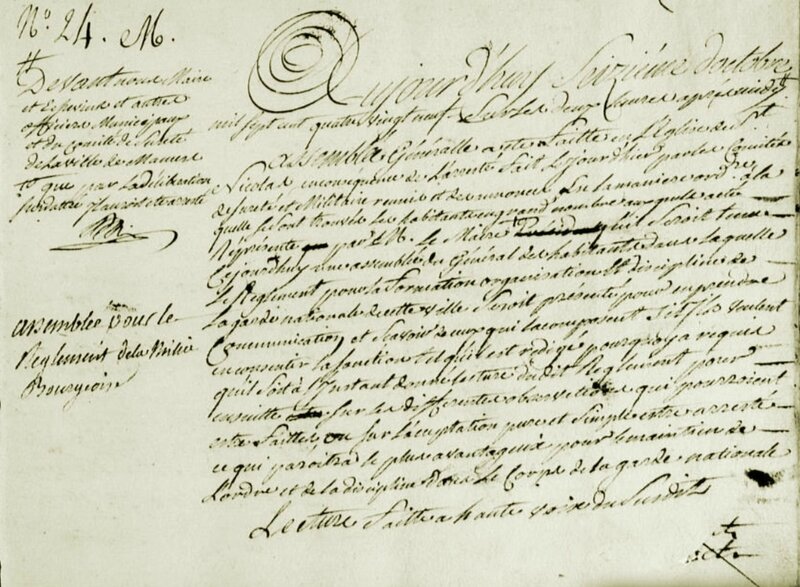 N.º 24. M.
Devant nous Maire
et Echevins et autres
officiers Municipaux
et du comité de Sureté
de la ville de
que par la deliberation
assemblée pour le
Reglement de la Milice
Bourgeoise
Aujourd'huy Seizième d'octobre
mil sept cent quatre vingt neuf sur les deux heures après midy
assemblée Généralle a été faitte en l'Eglise de St
Nicolas en consequence de l'arrêté fait le jour d'hier par les Comités
de sureté et Militaire reunis et des annonces en la maniere ordre. à la
quelle se sont trouvés les habitants en grand nombre auxquels a été
Représenté par M. le Maire qu'il seroit tenu
Cejourdhuy une assemblée du Général des habitants dans laquelle
Le Reglement pour la formation organisation et discipline de
La garde nationale de cette ville seroit présenté pour en prendre
Communication, et savoir de ceux qui la composent s'ils veulent
en consentir la fonction tel qu'il est redigé pourquoy a requis
qu'il soit à l'instant donné lecture dudit Reglement pour
ensuitte sur les differentes observations qui pourroient
estre faittes, ou sur l'acceptation pure et simple estre arresté
ce qui paroitra le plus avantageux pour le maintien de
L'ordre et de la discipline dans le Corps de la garde nationale
Lecture faitte a haute voix du Susdit